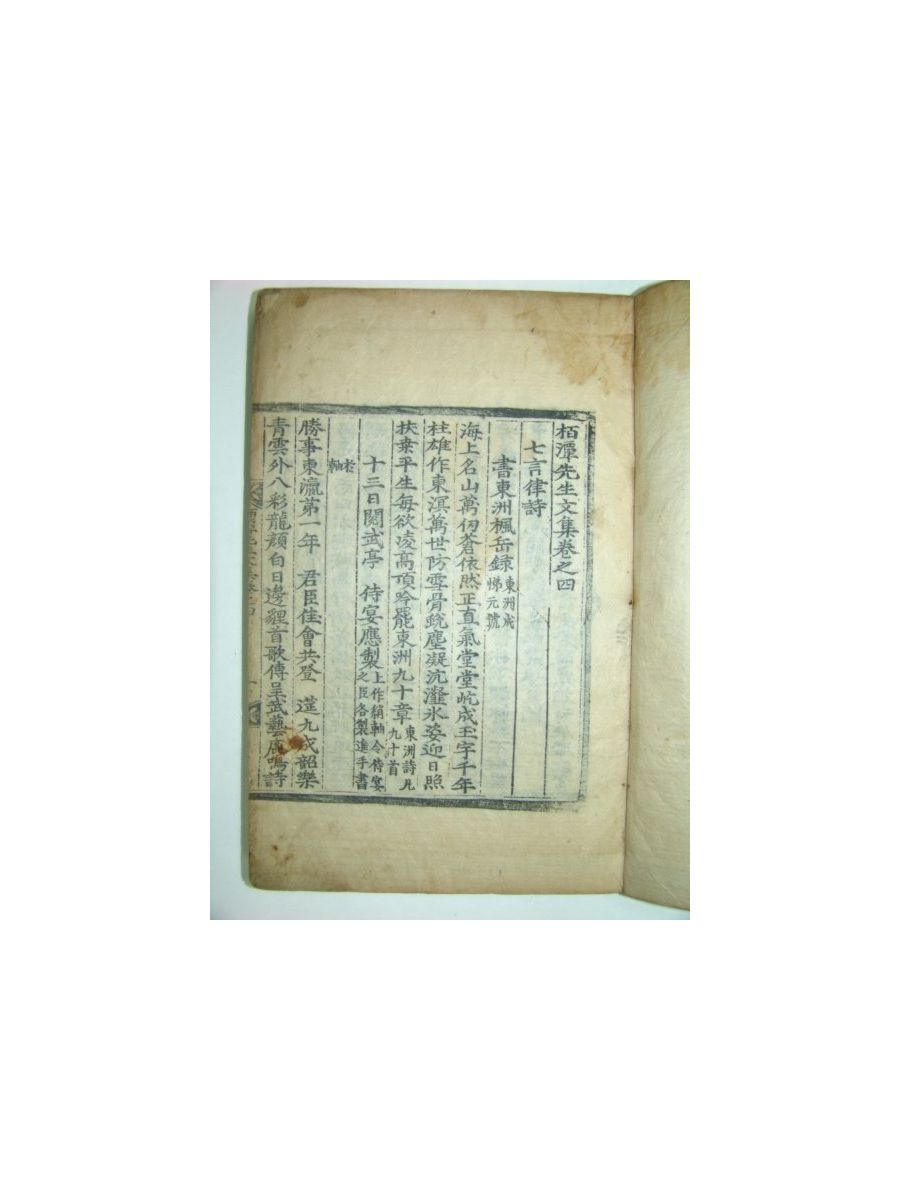 栢潭先生文集卷之四
七言律詩
書東洲楓岳錄 東洲成悌元號
海上名山萬仞蒼依然正直氣堂堂屹成玉宇千年
柱雄作東溟萬世防雪骨銳塵凝沆瀣氷姿迎日照
扶桑平生每欲凌高頂吟罷東洲九十章 東洲詩凡九十首
十三日閱武亭 侍宴應製 上作絹軸令侍宴之臣各製進手書
於軸
勝事東瀛第一年 君臣佳會共登 筵九成韶樂
青雲外八彩龍顔白日邊貍首歌傳呈武藝鹿鳴詩